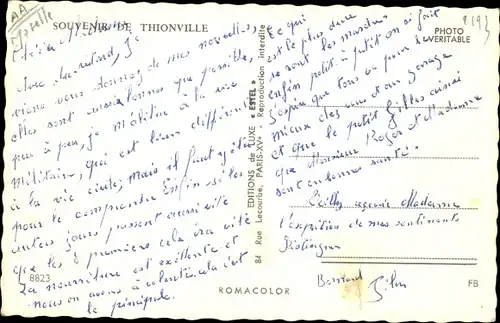 AA
Moselle
SOUVENIR DE THIONVILLE
Chère Madame,
Avec du retard, je
viens vous donner de mes nouvelles,
elles sont aussi bonnes que possible,
peu à peu, je m'habitue à la vie
militaire, qui est bien différente
à la vie civile, mais il faut y être
pour le comprendre. Enfin si les
autres jours passent aussi vite
que les premiers cela ira vite
La nourriture est excellente et
nous en avons à volonté, cela c'est
le principal.
8823
ÉDITIONS de LUXE « ESTEL »
84 Rue Lecourbe, PARIS-XVe
Reproduction interdite
ROMACOLOR
PHOTO
VÉRITABLE
Ce qui
est le plus dure
ce sont les
enfin petit à petit on si fait
J'espère que tous va pour le
mieux chez vous et au garage
et que le petit Gilles ainsi
que Monsieur Roger et Madame
sont en bonne santé.
Veuillez agréer Madame
l'expression de mes sentiments
Distingués
Bernard
FB